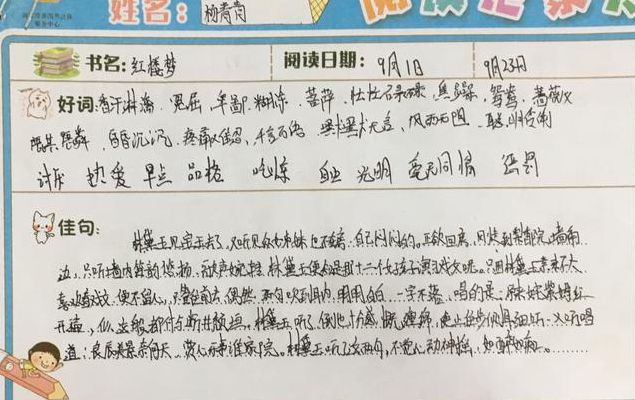 姓名：杨青青
阅读记录卡
书名：红楼梦 阅读日期：9月1日 9月23日
好词：香汗淋漓、冤屈、卑鄙、糊涂、菩萨、焦躁、鸳鸯、蔷薇
昏昏沉沉、默默无言、风雨
讨厌 热爱 早点 品格 吃惊 自由 光明 毫无同情 惩罚
佳句：
林黛玉见宝玉去了，又听见众姊妹也不在房，自己闷闷的。正欲回房，刚走到梨香院墙角
边，只听墙内笛韵悠扬，歌声婉转。林黛玉便知是那十二个女孩子演习戏文呢。只因林黛玉素来不大
喜欢看戏，便不留心，只管往前走。偶然两句吹到耳内，明明白白，一字不落，唱的是：原来姹紫嫣红
开遍，似这般都付与断井颓垣。林黛玉听了，倒也十分感慨缠绵，便止住步侧耳细听，又听唱
道：良辰美景奈何天，赏心乐事谁家院。林黛玉听了这两句，不觉心动神摇，如醉如痴。………